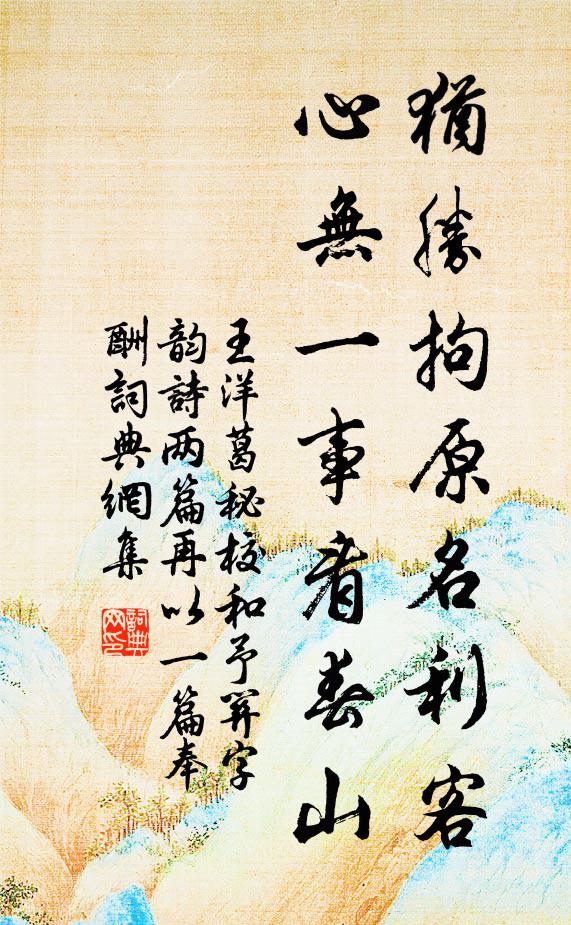 猶勝拘原名利客
心無一事看春山
王洋葛秘校和予羿字
韵詩两篇再以一篇奉
酬詞典網集
詞典
网印